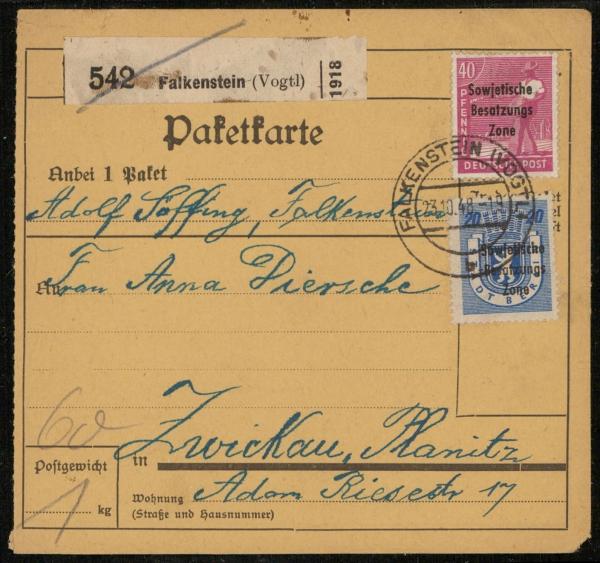 542 Falkenstein (Vogtl)
1918
Paketkarte
Anbei 1 Paket
Adolf Söffing, Falkenstein
An
Frau Anna Diersche
60
Zwickau, Planitz
Postgewicht
1 kg
in
Adam Riesestr 17
Wohnung
(Straße und Hausnummer)
40
PFENNIG
Sowjetische
Besatzungs
Zone
DEUTSCHE POST
FALKENSTEIN (VOGTL)
23.10.48
20 20
Sowjetische
Besatzungs
Zone
STADT BERLIN